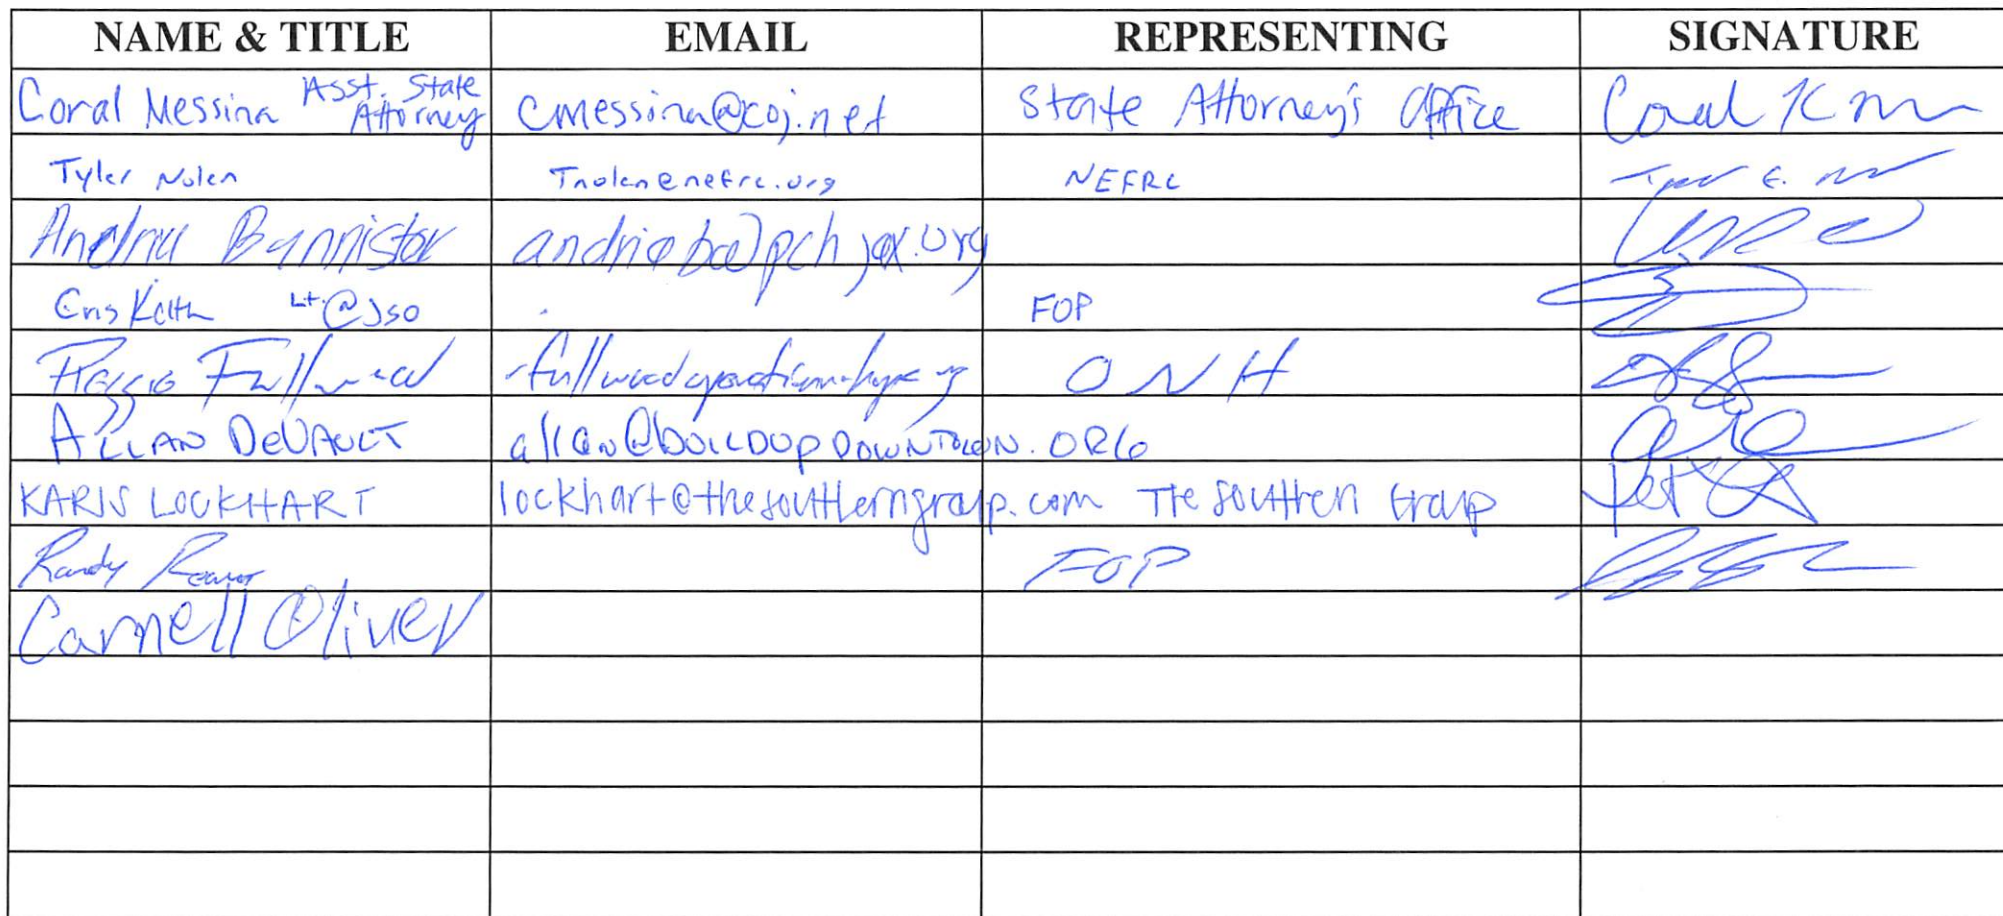 NAME & TITLE EMAIL REPRESENTING SIGNATURE
Coral Messina Asst. State Attorney cmessina@coj.net State Attorney's Office
Tyler Nolen Tnolen@nefrc.org NEFRC
Bannister andrieb@pchjax.org
Cris Keith Lt. @JSO FOP
Reggie Fullwood ONH
ALLAN DeVAULT allan@BUILDUPDOWNTOWN.ORG
KARIS LOCKHART lockhart@thesoutherngroup.com The Southern Group
Randy Reaves FOP
Carnell Oliver